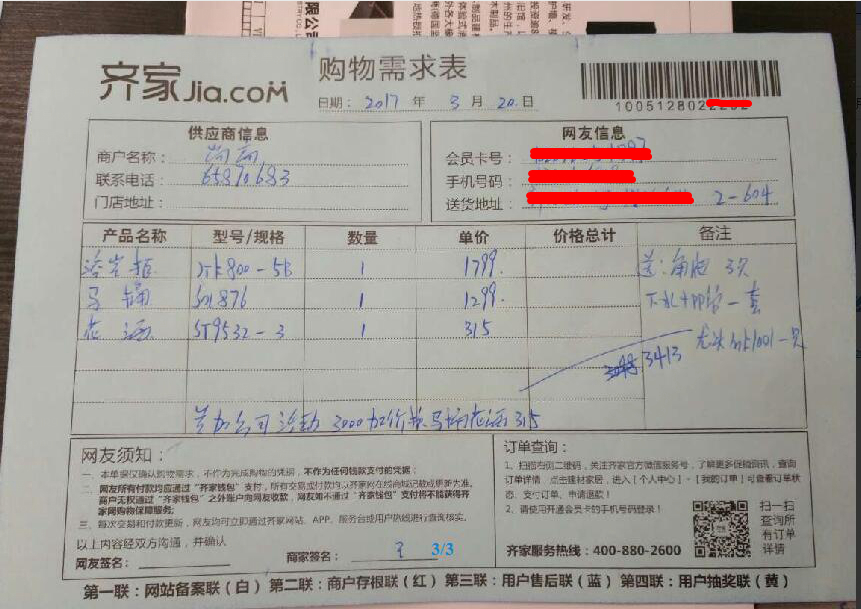 限公司
齐家Jia.com
购物需求表
日期: 2017 年 3 月 20 日
1005128022
供应商信息
商户名称:
联系电话: 65870683
门店地址:
网友信息
会员卡号:
手机号码:
送货地址: 2-604
产品名称 型号/规格 数量 单价 价格总计 备注
浴室柜 800-5B 1 1799.
马桶 1876 1 1299.
花洒 ST9532-3 1 315
送:角阀 3只
下水 一套
龙头 1001一只
3413
参加公司活动 3000加价换马桶花洒 315
网友须知:
一、本单据仅确认购物需求,不作为完成购物的凭据,不作为任何钱款支付的凭据;
二、网友所有付款均应通过“齐家钱包”支付,所有交易或付款均以齐家网在线商城记载或更新为准。
商户无权通过“齐家钱包”之外账户向网友收款,网友如不通过“齐家钱包”支付将不能获得齐
家网购物保障服务;
三、首次交易和付款更新,网友均可立即通过齐家网站、APP、服务台或用户热线进行查询核实。
以上内容经双方沟通,并确认
网友签名:
商家签名: 王 3/3
订单查询:
1、扫描右则二维码,关注齐家官方微信服务号,了解更多促销资讯,查询
订单详情 点击建材家居,进入[个人中心]-[我的订单]可查看订单状
态、支付订单、申请退款!
2、请使用开通会员卡的手机号码登录!
齐家服务热线:400-880-2600
扫一扫
查询所
有订单
详情
第一联:网站备案联(白) 第二联:商户存根联(红) 第三联:用户售后联(蓝) 第四联:用户抽奖联(黄)